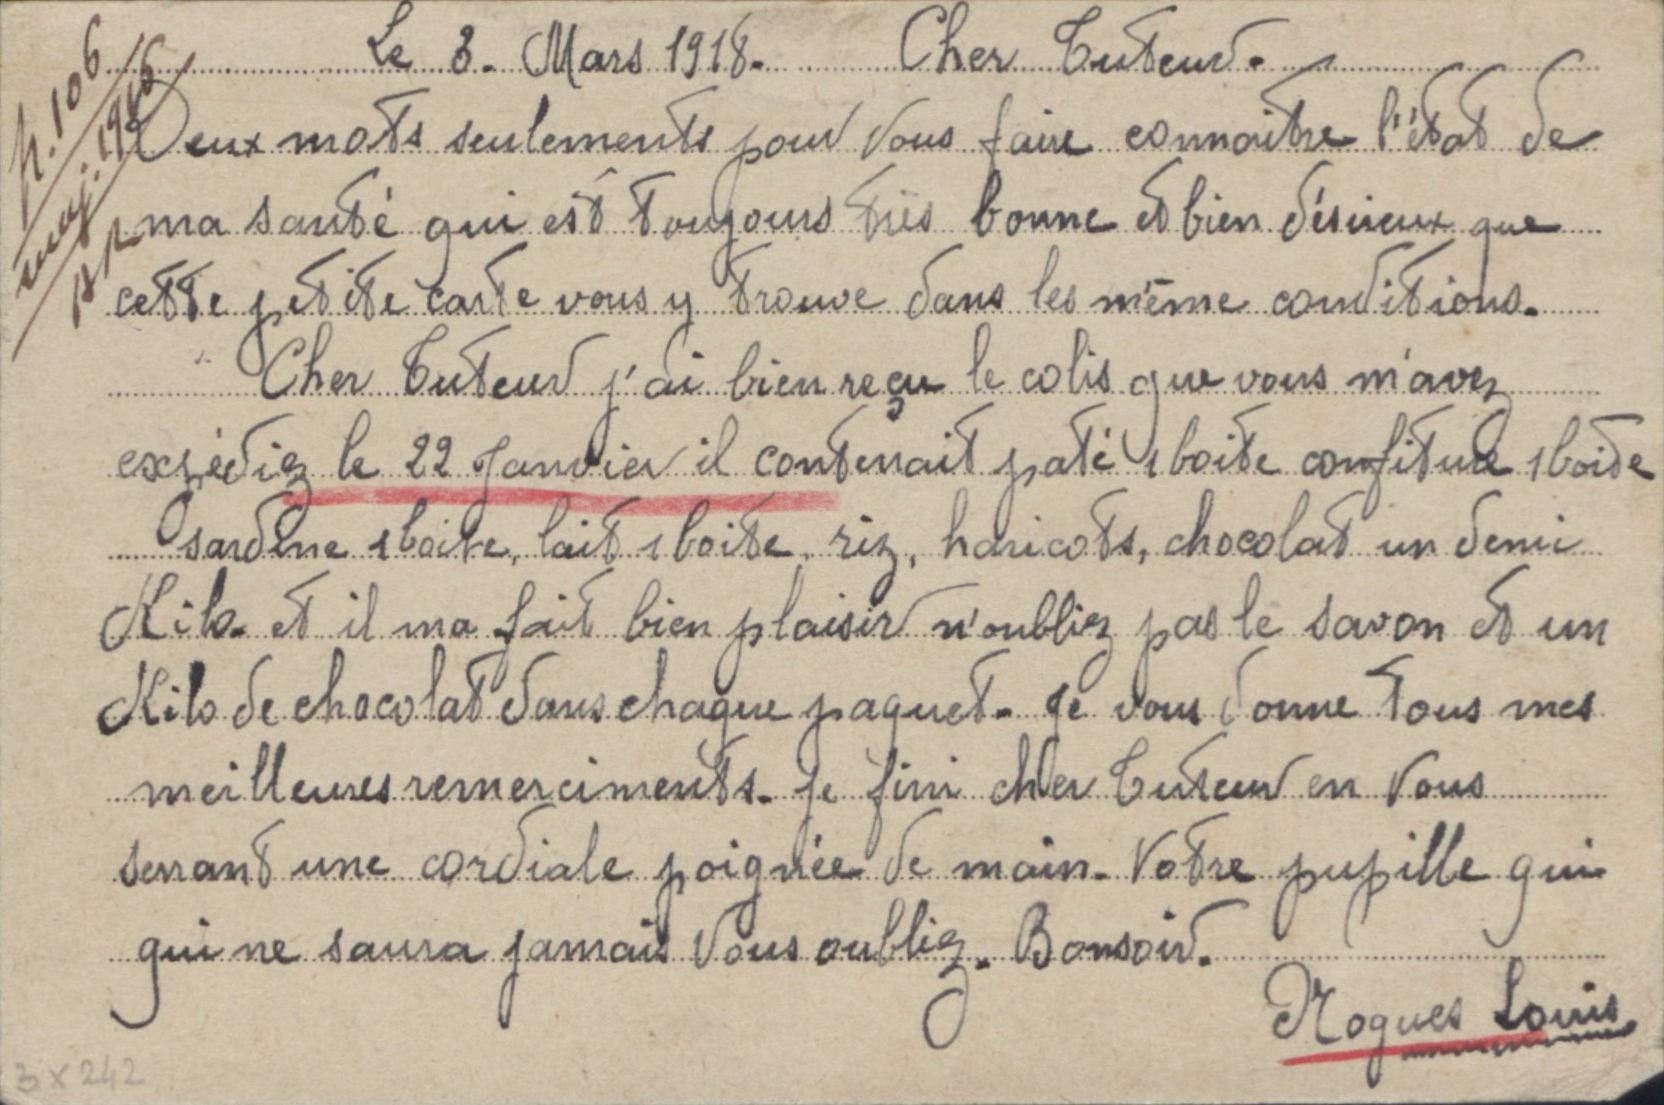 Le 8. Mars 1918. Cher Tuteur.
Deux mots seulements pour vous faire connaitre l'état de
ma santé qui est toujours très bonne et bien désireux que
cette petite carte vous y trouve dans les même conditions.
Cher Tuteur j'ai bien reçu le colis que vous m'avez
expédiez le 22 Janvier il contenait paté 1 boite confiture 1 boite
sardine 1 boite, lait 1 boite, riz, haricots, chocolat un demi
Kilo. et il ma fait bien plaisir n'oubliez pas le savon et un
Kilo de chocolat dans chaque paquet. Je vous donne tous mes
meilleures remerciments. Je fini cher Tuteur en vous
serrant une cordiale poignée de main. Votre pupille qui
qui ne saura jamais vous oubliez. Bonsoir.
Nogues Louis
3 x 242